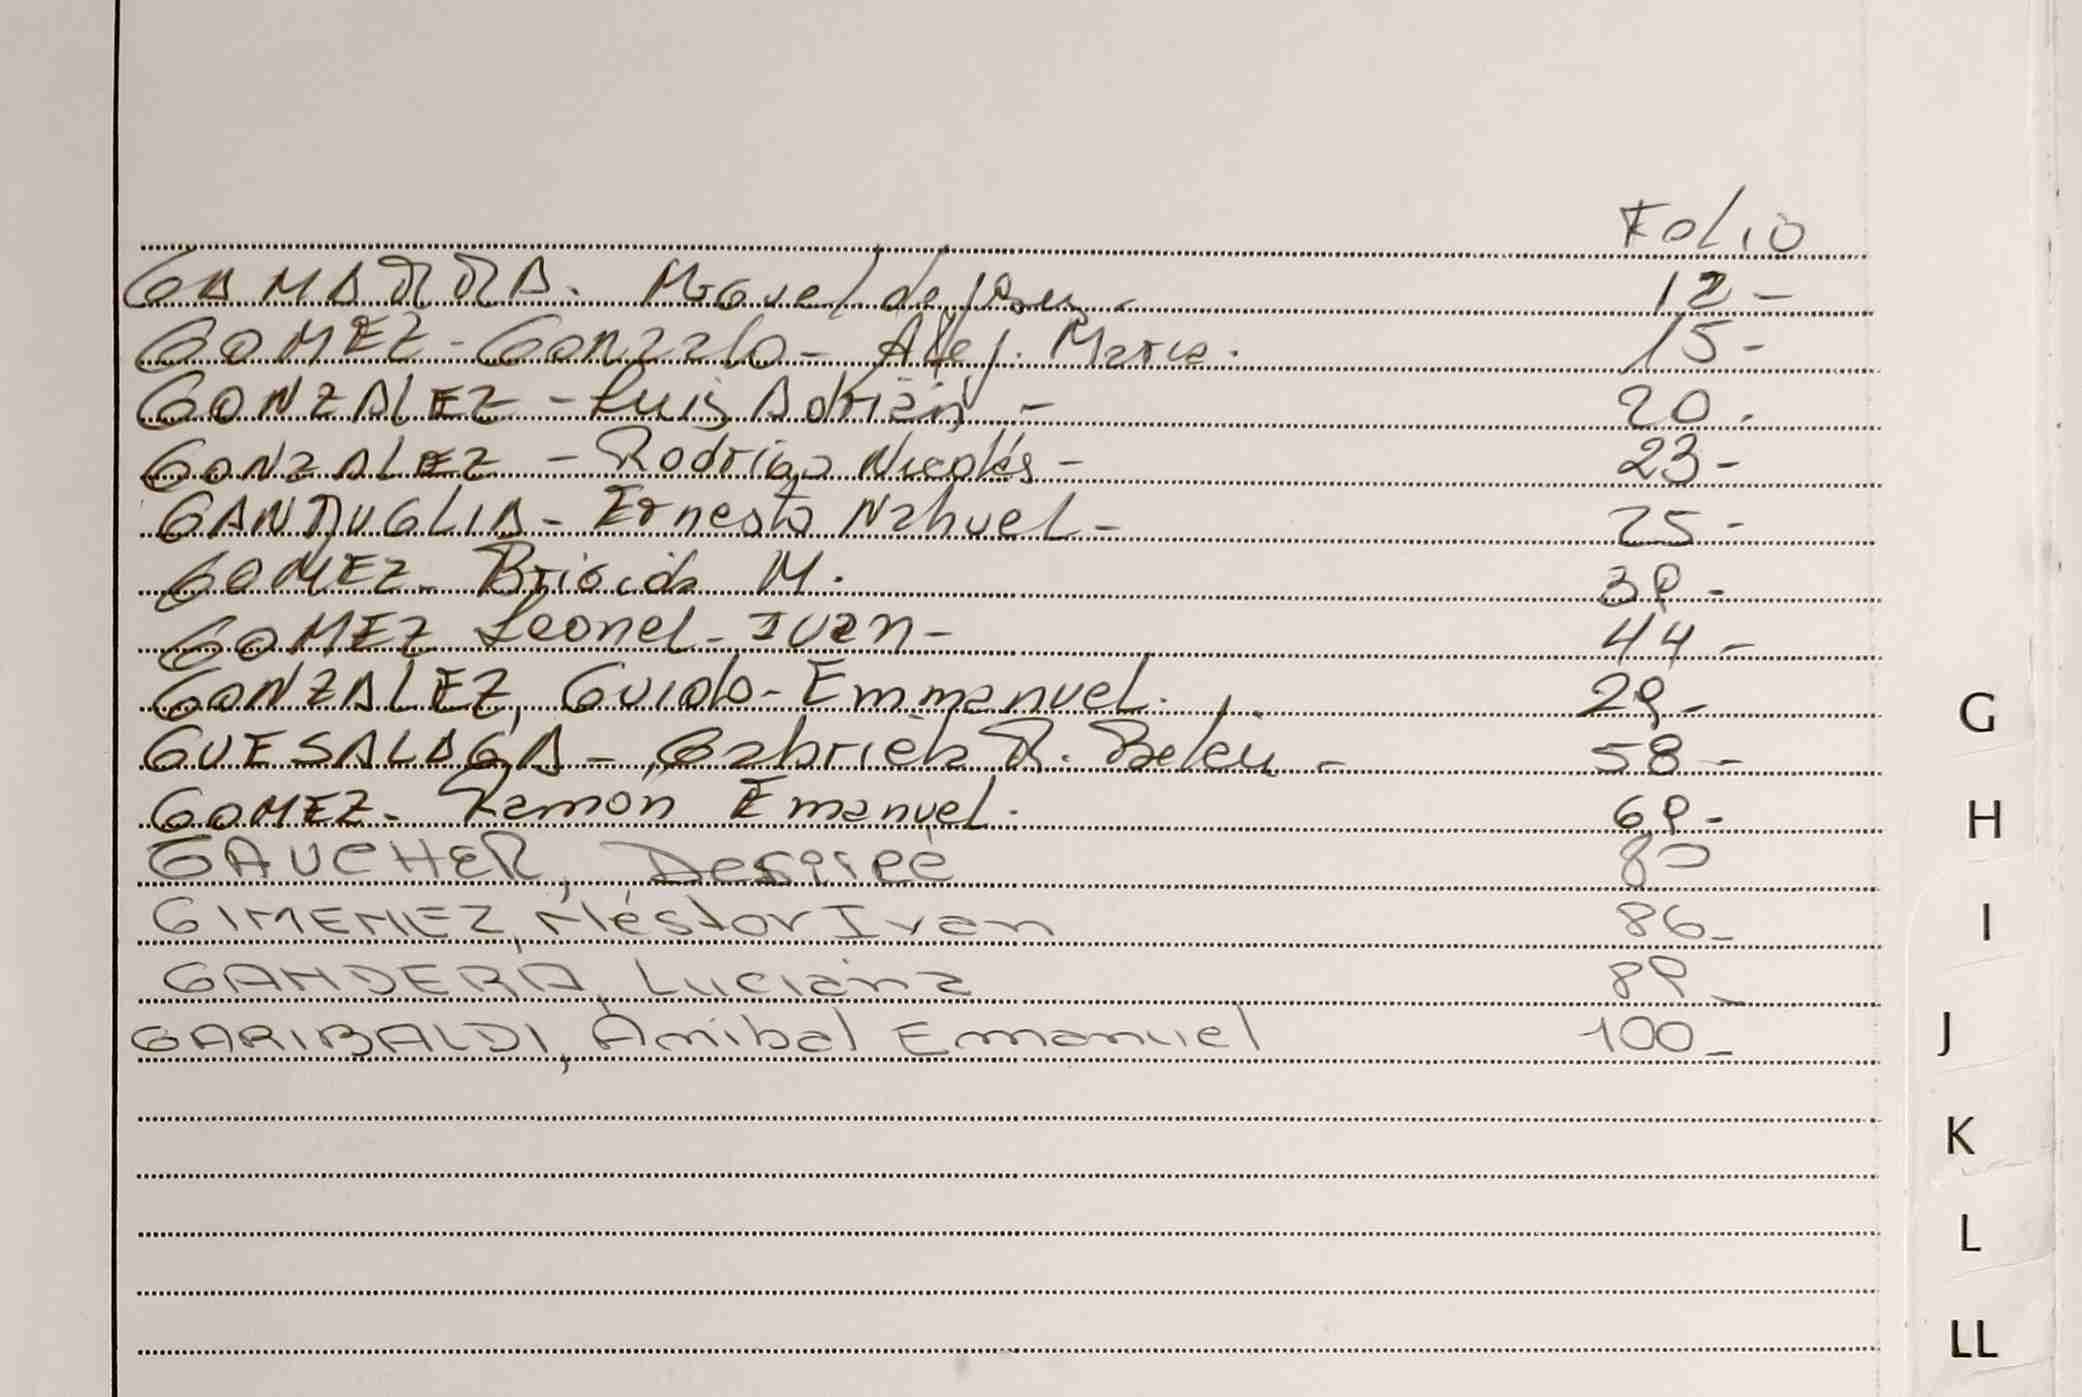 Folio
GAMARRA. Miguel de Jesus - 12 -
GOMEZ - Gonzalo - Alej. Maria. 15 -
GONZALEZ - Luis Adrián - 20 -
GONZALEZ - Rodrigo Nicolás - 23 -
GANDUGLIA - Ernesto Nahuel - 25 -
GOMEZ - Brigida M. 39 -
GOMEZ Leonel - Ivan - 44 -
GONZALEZ, Guido - Emmanuel. 29 -
GUESALAGA - Gabriela R. Belen - 58 -
GOMEZ - Ramón Emanuel. 69 -
GAUCHER, Desireé 80
GIMENEZ, Néstor Ivan 86 -
GANDERA, Luciana 89 -
GARIBALDI, Anibal Emanuel 100 -
G
H
I
J
K
L
LL